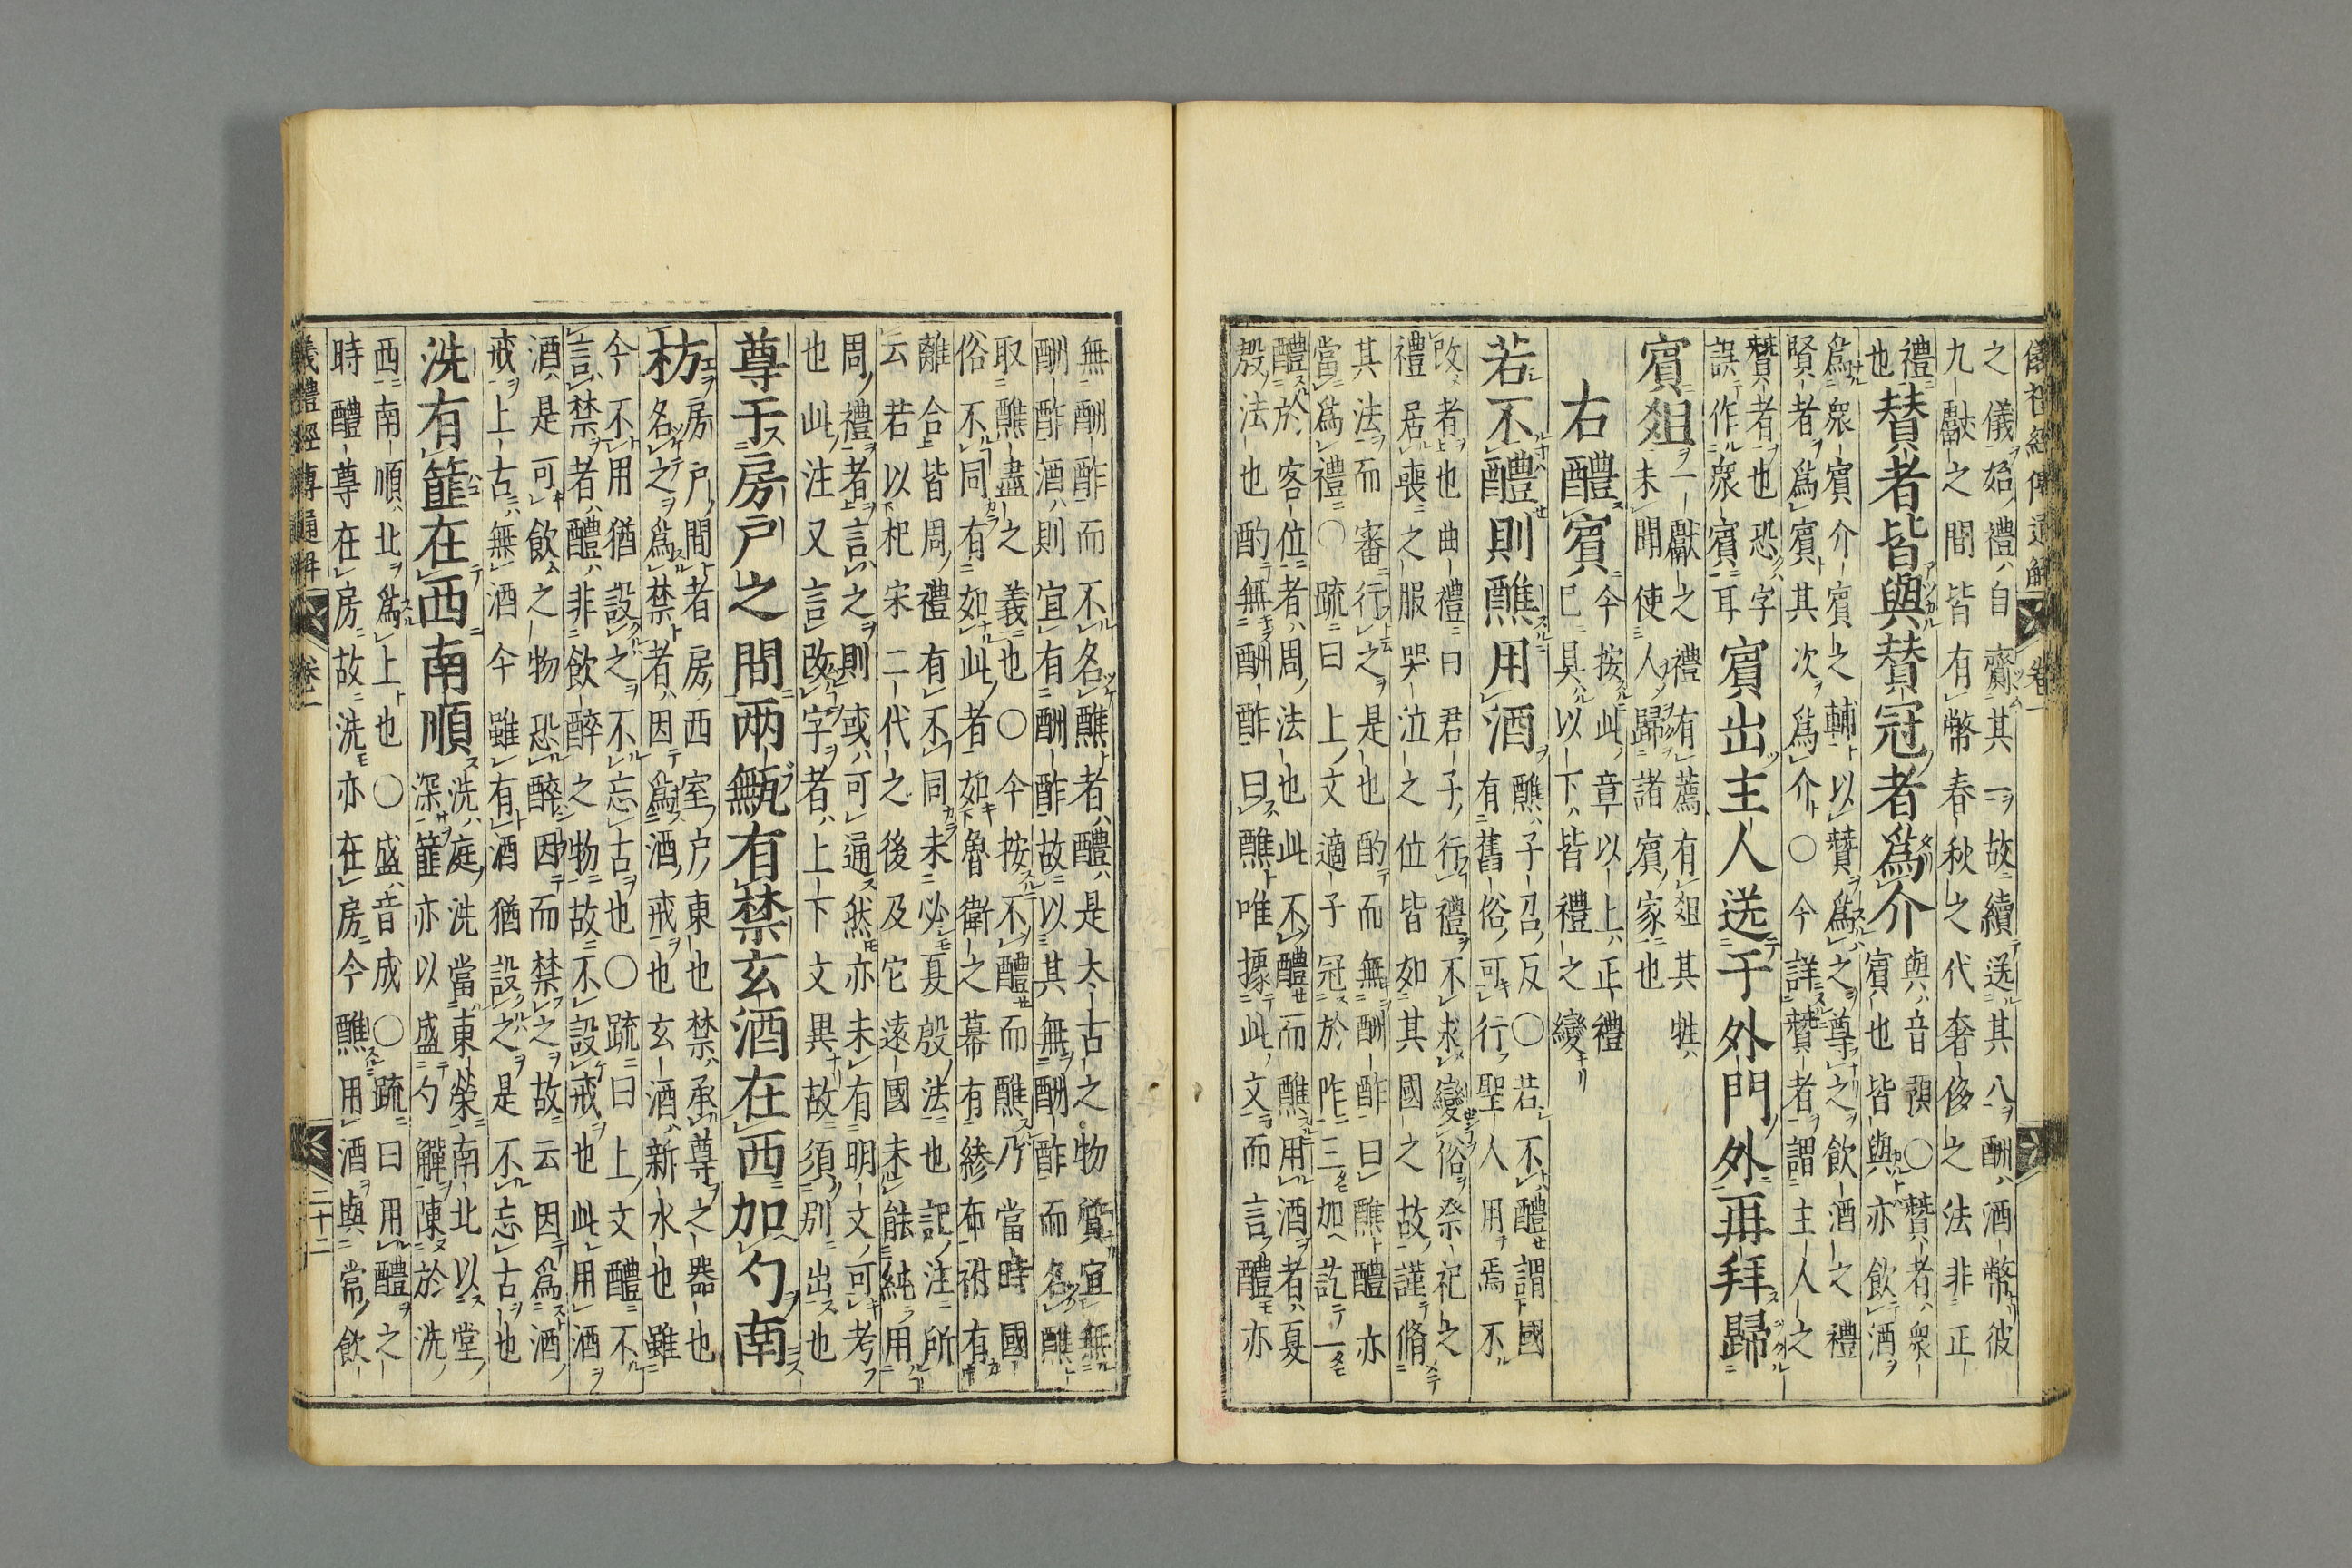 儀禮經傳通解 卷一
之儀始禮自齋其一故續送其八酬酒幣彼
九獻之間皆有幣春秋之代奢侈之法非正
禮也贊者皆與贊冠者爲介與音預○贊者衆
賓也皆與亦飲酒
爲衆賓介賓之輔以贊爲之尊之飲酒之禮
賢者爲賓其次爲介○今詳贊者謂主人之
贊者也恐字
誤作衆賓耳賓出主人送于外門外再拜歸
賓俎一獻之禮有薦有俎其牲
未聞使人歸諸賓家也
右醴賓今按此章以上正禮
已具以下皆禮之變
若不醴則醮用酒醮子召反○若不醴謂國
有舊俗可行聖人用焉不
改者也曲禮曰君子行禮不求變俗祭祀之
禮居喪之服哭泣之位皆如其國之故謹脩
其法而審行之是也酌而無酬酢曰醮醴亦
當爲禮○疏曰上文適子冠於阼三加訖一
醴於客位者周法也此不醴而醮用酒者夏
殷法也酌無酬酢曰醮唯據此文而言醴亦
無酬酢而不名醮者醴是太古之物質宜無
酬酢酒則宜有酬酢故以其無酬酢而名醮
取醮盡之義也○今按不醴而醮乃當時國
俗不同有如此者如魯衛之幕有縿布祔有
離合皆周禮有不同未必夏殷法也記注所
云若以杞宋二代之後及它遠國未能純用
周禮者言之則或可通然亦未有明文可考
也此注又言改字者上下文異故須別出也
尊于房戶之間兩甒有禁玄酒在西加勺南
枋房戶間者房西室戶東也禁承尊之器也
名之爲禁者因爲酒戒也玄酒新水也雖
今不用猶設之不忘古也○疏曰上文醴不
言禁者醴非飲醉之物故不設戒也此用酒
酒是可飲之物恐醉因而禁之故云因爲酒
戒上古無酒今雖有酒猶設之是不忘古也
洗有篚在西南順洗庭洗當東榮南北以堂
深篚亦以盛勺觶陳於洗
西南順北爲上也○盛音成○疏曰用醴之
時醴尊在房故洗亦在房今醮用酒與常飲
儀禮經傳通解 卷一 二十二